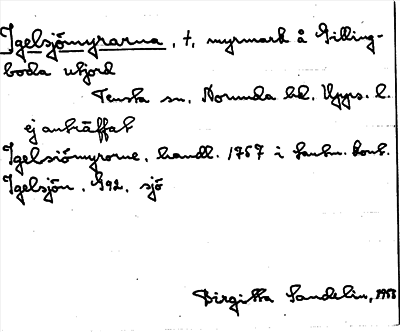 Igelsjömyrarna, t, myrmark å Gilling-
boda utjord
Tensta sn, Norunda hd, Upps. l.
ej anträffat
Igelsiömyrorne, handl. 1757 i lantm. kont.
Igelsjön, G92, sjö
Birgitta Sandelin, 1953